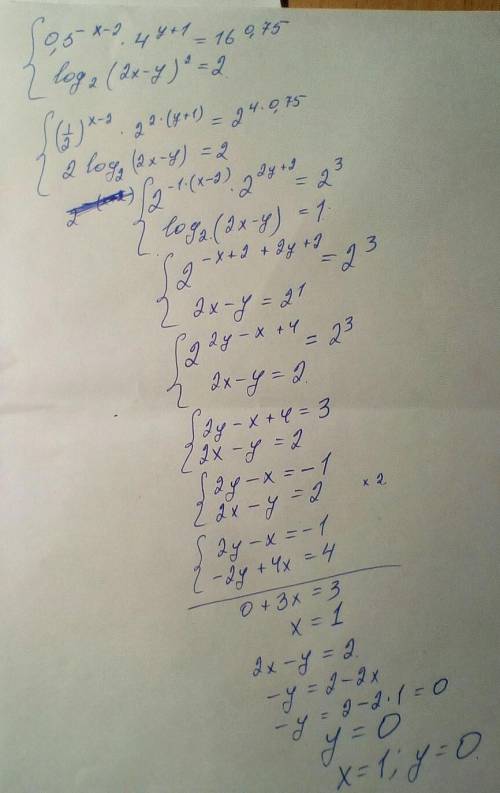 { 0,5^(-x-2) · 4^(y+1) = 16^(0,75)
log₂(2x-y)² = 2
{ (1/2)^(x-2) · 2^(2·(y+1)) = 2^(4·0,75)
2 log₂(2x-y) = 2
{ 2^(-1·(x-2)) · 2^(2y+2) = 2³
log₂(2x-y) = 1
{ 2^(-x+2+2y+2) = 2³
2x-y = 2¹
{ 2^(2y-x+4) = 2³
2x-y = 2
{ 2y-x+4 = 3
2x-y = 2
{ 2y-x = -1
2x-y = 2 ×2
{ 2y-x = -1
-2y+4x = 4
0+3x = 3
x = 1
2x-y = 2
-y = 2-2x
-y = 2-2·1 = 0
y = 0
x = 1; y = 0.